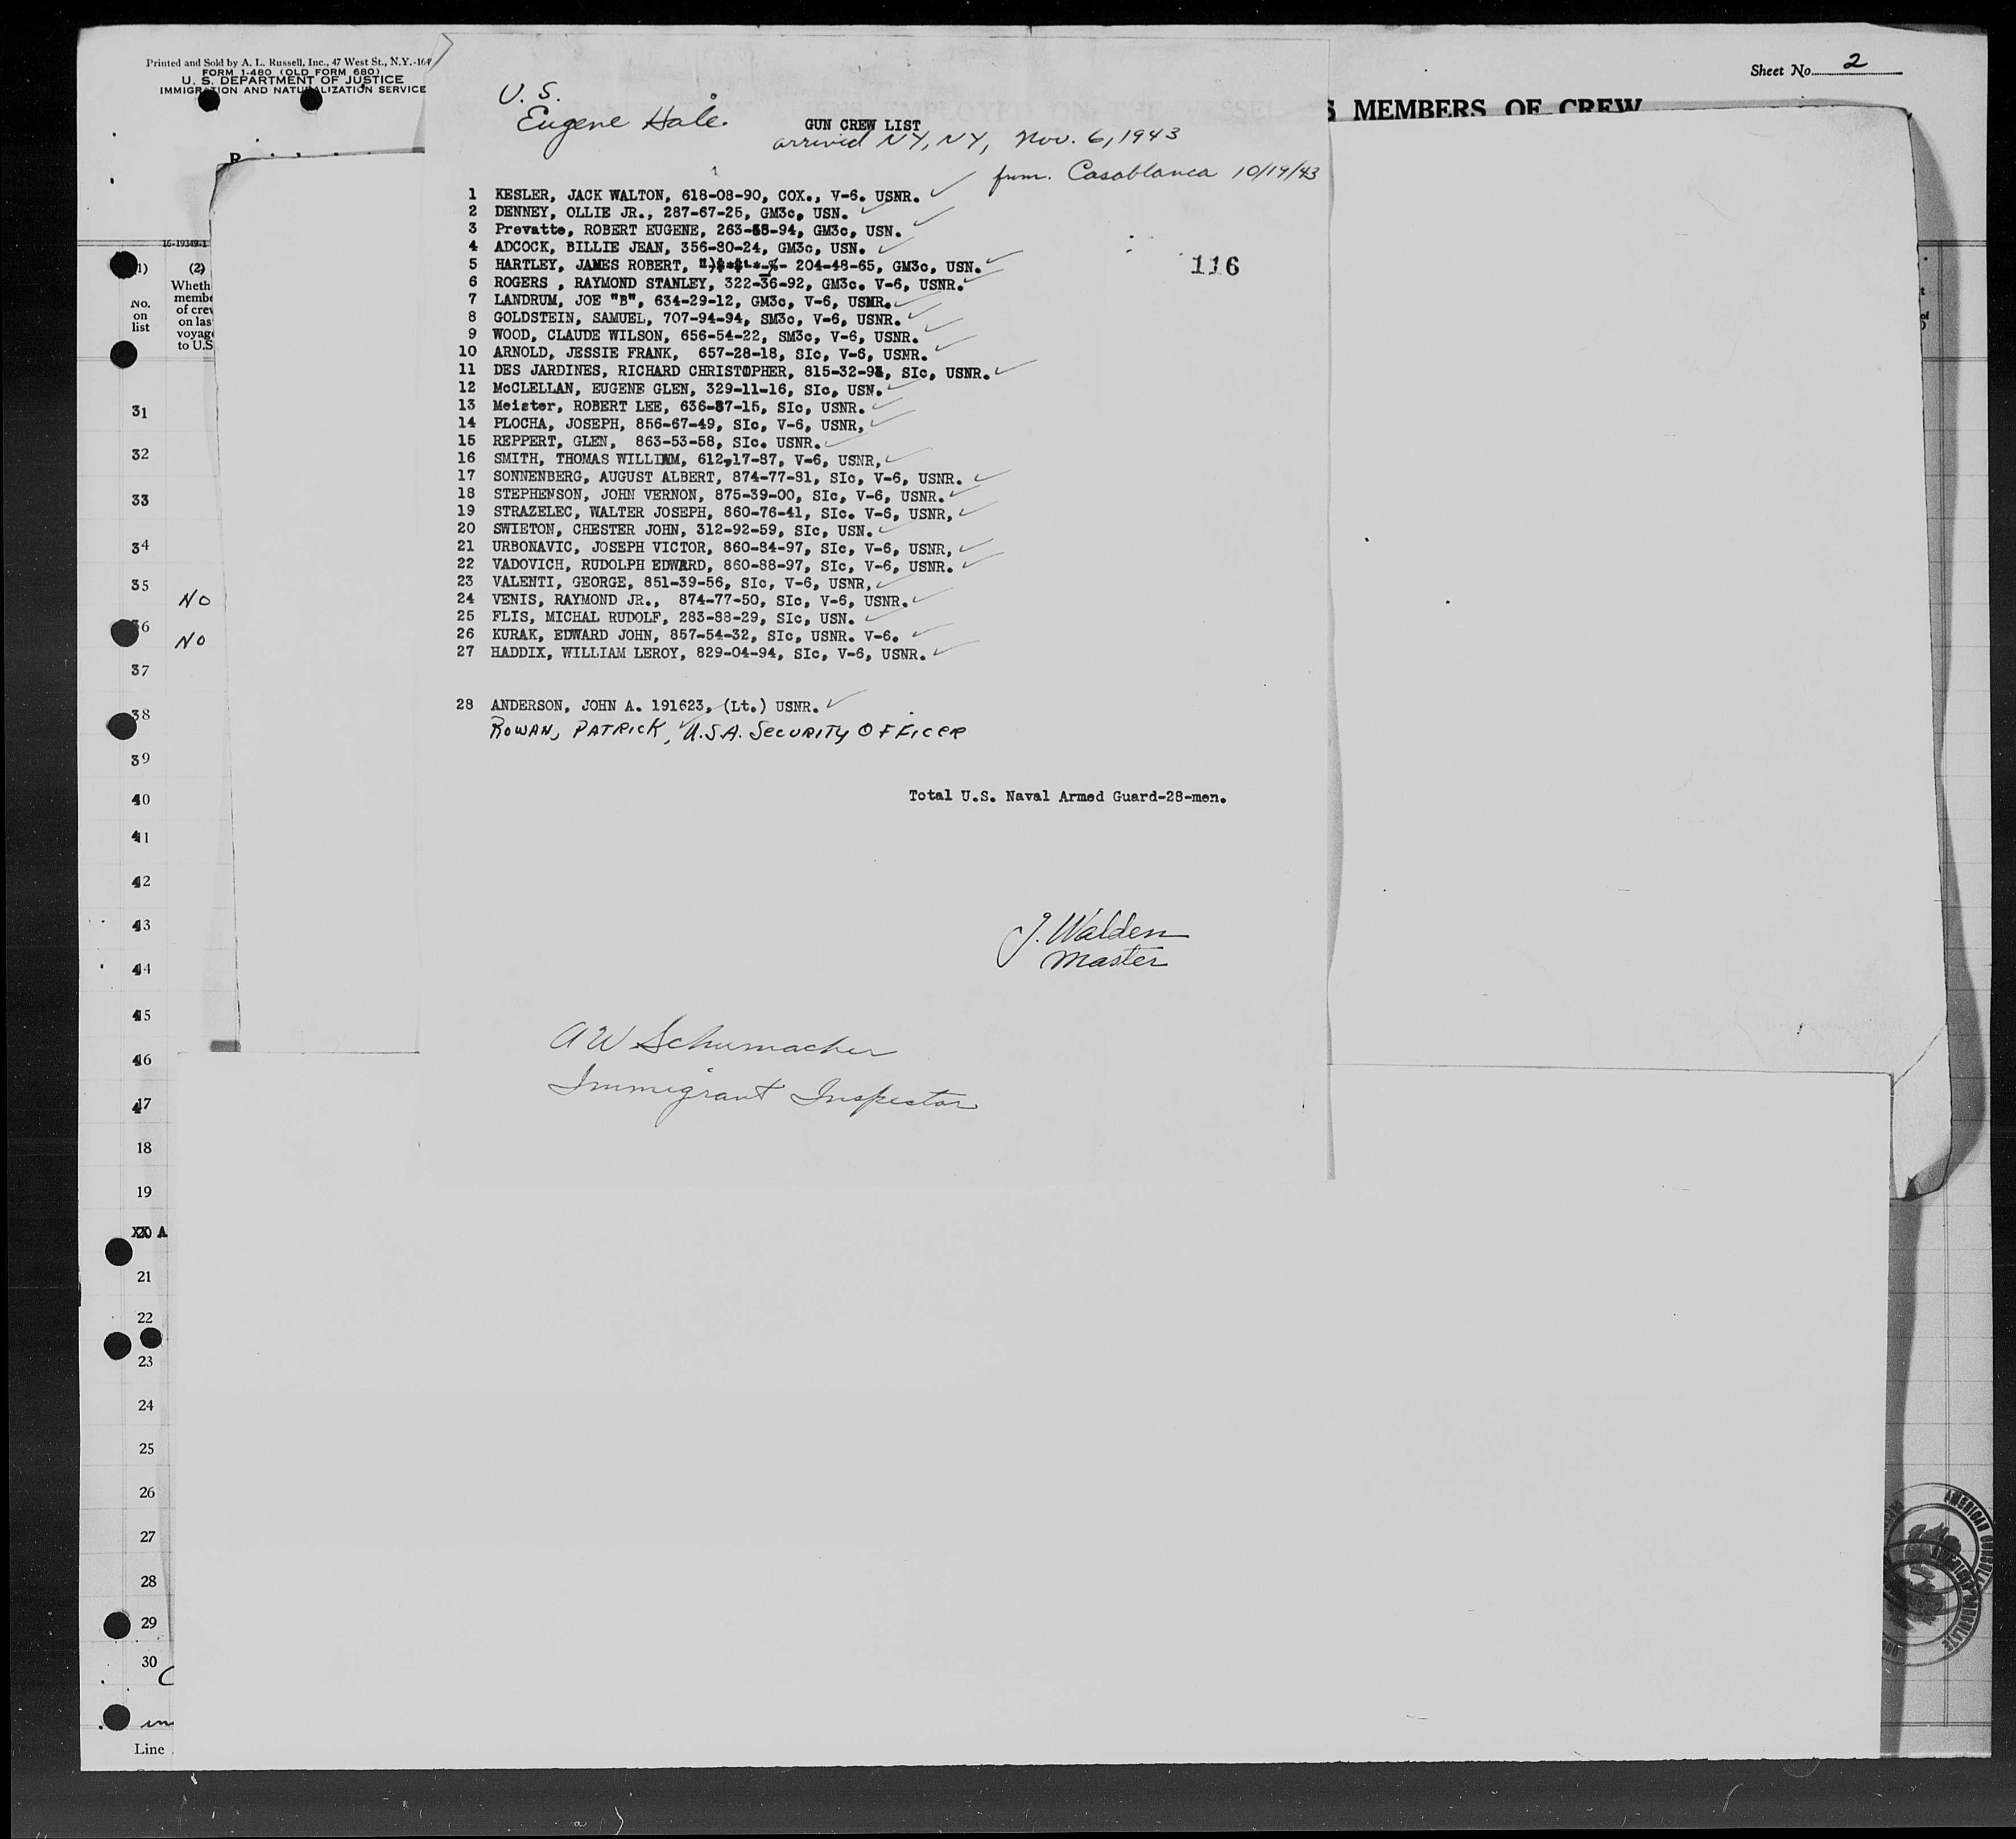 Printed and Sold by A. L. Russell, Inc., 47 West St., N.Y.-164
FORM 1-480 (OLD FORM 680)
U. S. DEPARTMENT OF JUSTICE
IMMIGRATION AND NATURALIZATION SERVICE
Sheet No. 2
S MEMBERS OF CREW
U. S.
Eugene Hale.
GUN CREW LIST
arrived NY, NY, Nov. 6, 1943
from. Casablanca 10/19/43
116
1 KESLER, JACK WALTON, 618-08-90, COX., V-6. USNR.
2 DENNEY, OLLIE JR., 287-67-25, GM3c, USN.
3 Prevatte, ROBERT EUGENE, 263-58-94, GM3c, USN.
4 ADCOCK, BILLIE JEAN, 356-80-24, GM3c, USN.
5 HARTLEY, JAMES ROBERT, 204-48-65, GM3c, USN.
6 ROGERS , RAYMOND STANLEY, 322-36-92, GM3c. V-6, USNR.
7 LANDRUM, JOE "B", 634-29-12, GM3c, V-6, USNR.
8 GOLDSTEIN, SAMUEL, 707-94-94, SM3c, V-6, USNR.
9 WOOD, CLAUDE WILSON, 656-54-22, SM3c, V-6, USNR.
10 ARNOLD, JESSIE FRANK, 657-28-18, SIc, V-6, USNR.
11 DES JARDINES, RICHARD CHRISTOPHER, SIc, USNR.
12 McCLELLAN, EUGENE GLEN, 329-11-16, SIc, USN.
13 Meister, ROBERT LEE, 636-37-15, SIc, USNR.
14 PLOCHA, JOSEPH, 856-67-49, SIc, V-6, USNR,
15 REPPERT, GLEN, 863-53-58, SIc. USNR.
16 SMITH, THOMAS WILLIAM, 612-17-87, V-6, USNR,
17 SONNENBERG, AUGUST ALBERT, 874-77-81, SIc, V-6, USNR.
18 STEPHENSON, JOHN VERNON, 875-39-00, SIc, V-6, USNR.
19 STRAZELEC, WALTER JOSEPH, 860-76-41, SIc. V-6, USNR,
20 SWIETON, CHESTER JOHN, 312-92-59, SIc, USN.
21 URBONAVIC, JOSEPH VICTOR, 860-84-97, SIc, V-6, USNR,
22 VADOVICH, RUDOLPH EDWARD, 860-88-97, SIc, V-6, USNR.
23 VALENTI, GEORGE, 851-39-56, SIc, V-6, USNR,
24 VENIS, RAYMOND JR., 874-77-50, SIc, V-6, USNR.
25 FLIS, MICHAL RUDOLF, 283-88-29, SIc, USN.
26 KURAK, EDWARD JOHN, 857-54-32, SIc, USNR. V-6.
27 HADDIX, WILLIAM LEROY, 829-04-94, SIc, V-6, USNR.
28 ANDERSON, JOHN A. 191623, (Lt.) USNR.
ROWAN, PATRICK, U.S.A. SECURITY OFFICER
Total U.S. Naval Armed Guard-28-men.
J. Walden
Master
A W Schumacher
Immigrant Inspector
16-19349-1
(1)
No.
on
list
(2)
Wheth
membe
of crew
on las
voyage
to U.S
31
32
33
34
35
NO
36
NO
37
38
39
40
41
42
43
44
45
46
47
18
19
20 A
21
22
23
24
25
26
27
28
29
30
Line
AMERICAN CONSULATE